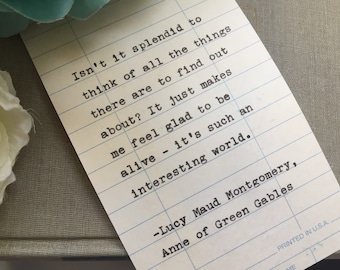 Isn't it splendid to
think of all the things
there are to find out
about? It just makes
me feel glad to be
alive - it's such an
interesting world.
-Lucy Maud Montgomery,
Anne of Green Gables
PRINTED IN U.S.A.